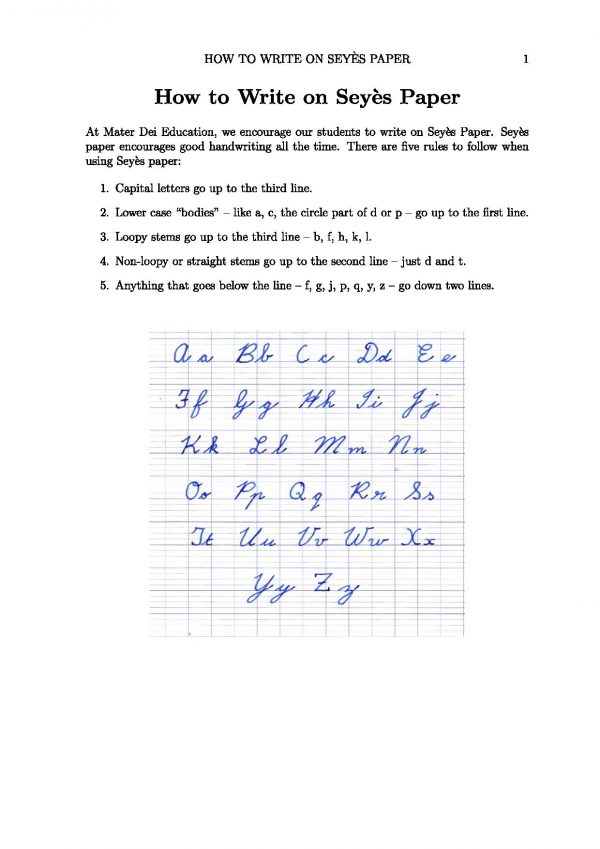 HOW TO WRITE ON SEYÈS PAPER 1
How to Write on Seyès Paper
At Mater Dei Education, we encourage our students to write on Seyès Paper. Seyès
paper encourages good handwriting all the time. There are five rules to follow when
using Seyès paper:
1. Capital letters go up to the third line.
2. Lower case “bodies” – like a, c, the circle part of d or p – go up to the first line.
3. Loopy stems go up to the third line – b, f, h, k, l.
4. Non-loopy or straight stems go up to the second line – just d and t.
5. Anything that goes below the line – f, g, j, p, q, y, z – go down two lines.
Aa Bb Cc Dd Ee
Ff Gg Hh Ii Jj
Kk Ll Mm Nn
Oo Pp Qq Rr Ss
Tt Uu Vv Ww Xx
Yy Zz